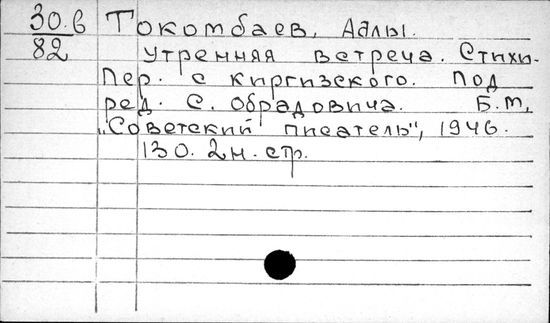 30.6 Токомбаев, Аалы.
82 Утренняя встреча. Стихи.
Пер. с киргизского. Под
ред. С. Обрадовича. Б.м,
„Советский писатель", 1946.
130. 2н. стр.